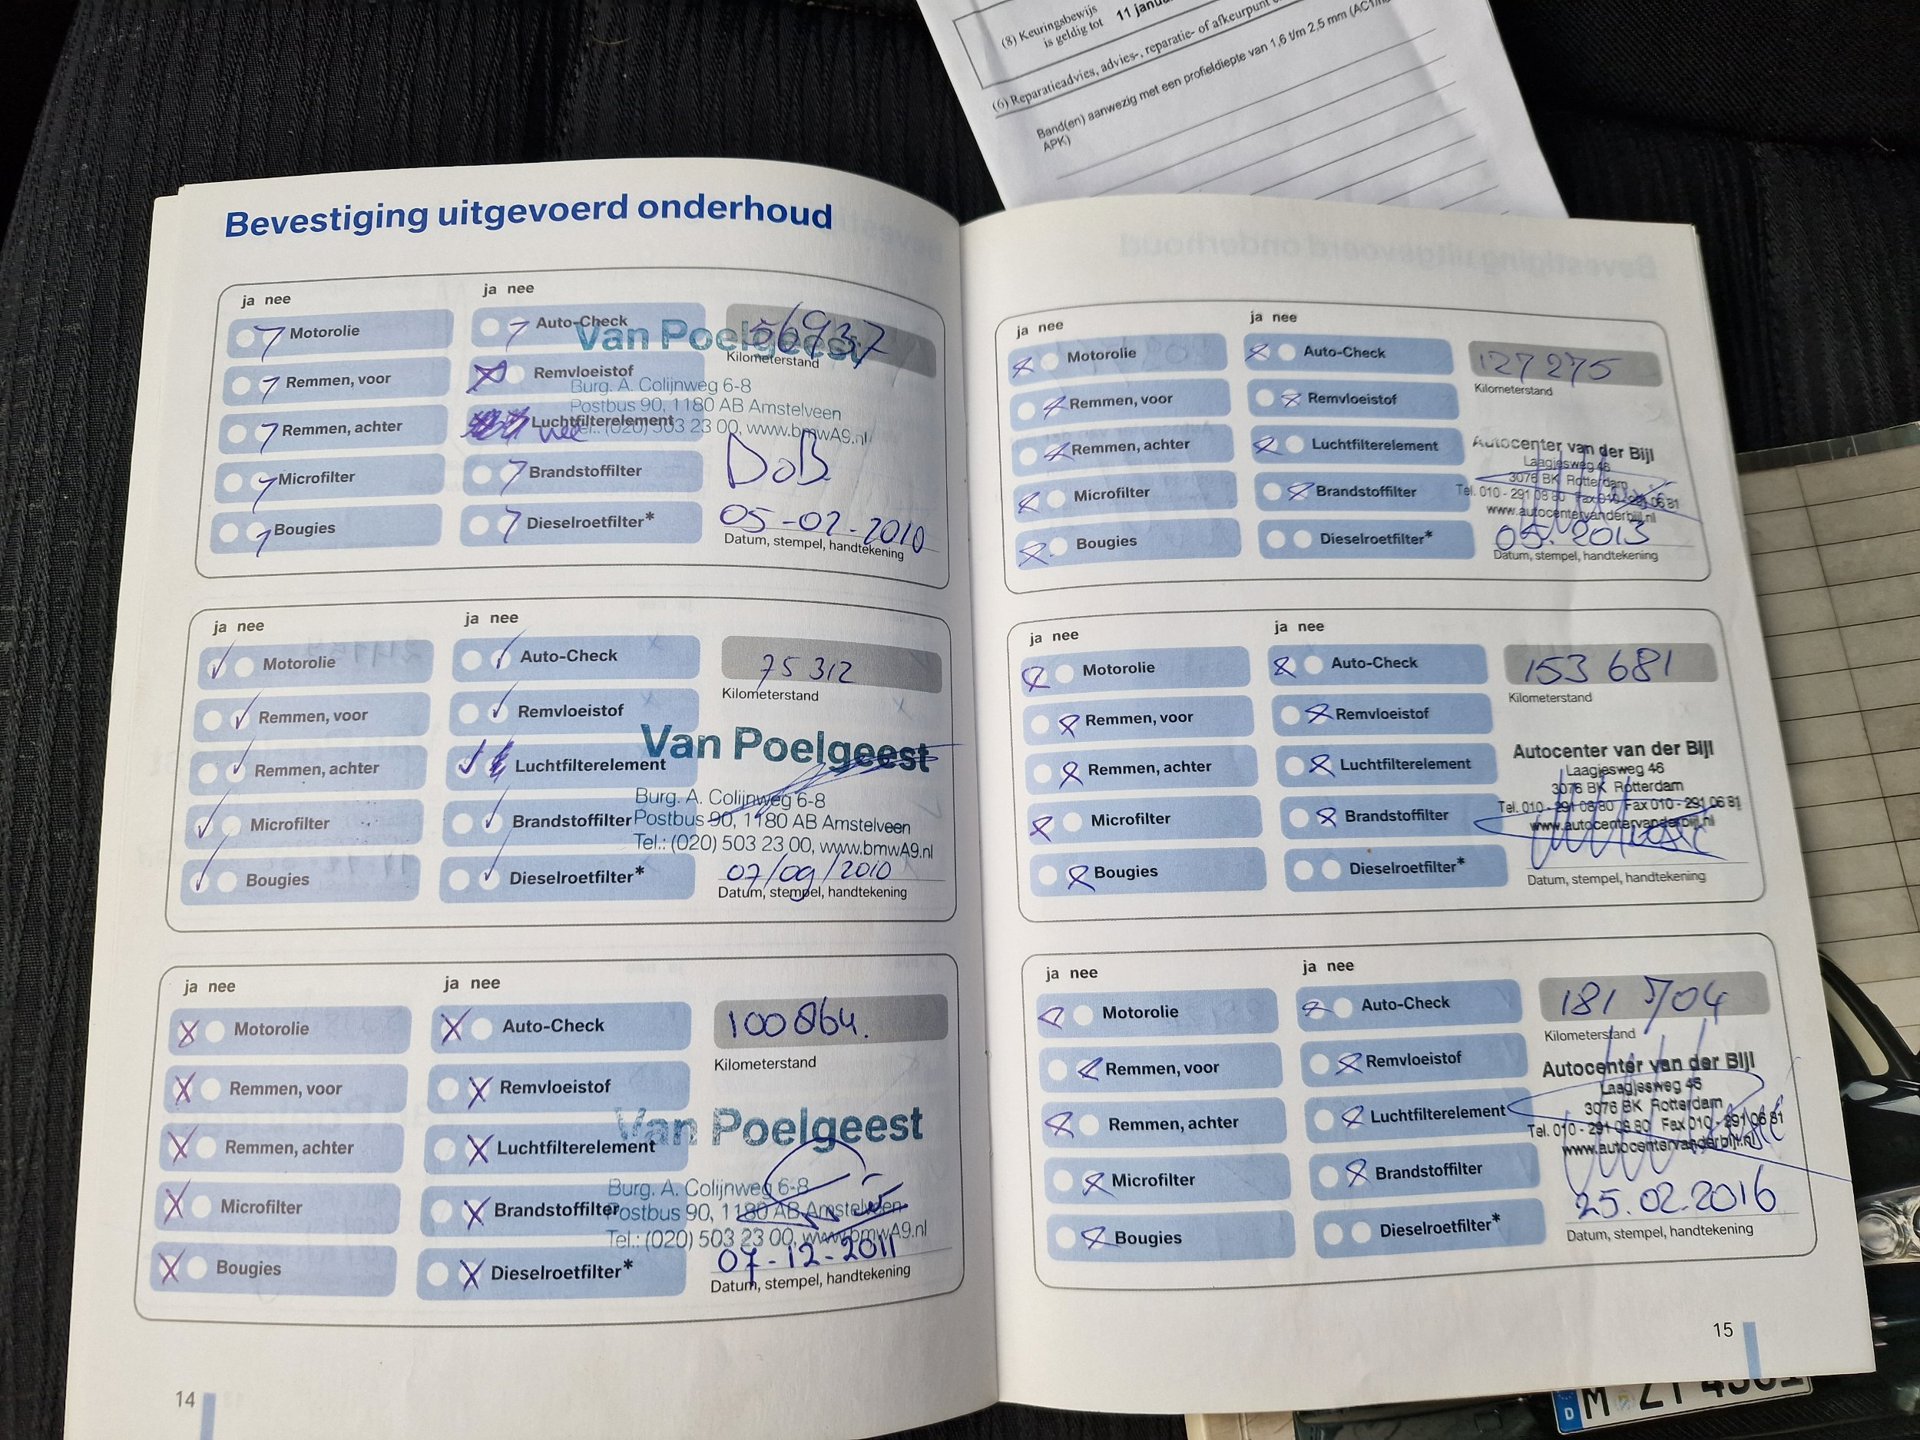 (8) Keuringsbewijs
is geldig tot 11
(6) Reparatieadvies, advies-, reparatie- of afkeurpunt
Band(en) aanwezig met een profieldiepte van 1,6 t/m 2,5 mm
APK)
Bevestiging uitgevoerd onderhoud
ja nee
ja nee
Motorolie
Auto-Check
56937
Kilometerstand
Remmen, voor
Remvloeistof
Remmen, achter
Luchtfilterelement
nee
Microfilter
Brandstoffilter
Bougies
Dieselroetfilter*
Van Poelgeest
Burg. A. Colijnweg 6-8
Postbus 90, 1180 AB Amstelveen
Tel.: (020) 503 23 00, www.bmwA9.nl
DoB
05-02-2010
Datum, stempel, handtekening
ja nee
ja nee
Motorolie
Auto-Check
75 312
Kilometerstand
Remmen, voor
Remvloeistof
Remmen, achter
Luchtfilterelement
Microfilter
Brandstoffilter
Bougies
Dieselroetfilter*
Van Poelgeest
Burg. A. Colijnweg 6-8
Postbus 90, 1180 AB Amstelveen
Tel.: (020) 503 23 00, www.bmwA9.nl
07/09/2010
Datum, stempel, handtekening
ja nee
ja nee
Motorolie
Auto-Check
100864.
Kilometerstand
Remmen, voor
Remvloeistof
Remmen, achter
Luchtfilterelement
Microfilter
Brandstoffilter
Bougies
Dieselroetfilter*
Van Poelgeest
Burg. A. Colijnweg 6-8
Postbus 90, 1180 AB Amstelveen
Tel.: (020) 503 23 00, www.bmwA9.nl
07-12-2011
Datum, stempel, handtekening
14
ja nee
ja nee
Motorolie
Auto-Check
127 275
Kilometerstand
Remmen, voor
Remvloeistof
Remmen, achter
Luchtfilterelement
Microfilter
Brandstoffilter
Bougies
Dieselroetfilter*
Autocenter van der Bijl
Laagjesweg 46
3076 BK Rotterdam
Tel. 010 - 291 08 80 Fax 010 - 291 06 81
www.autocentervanderbijl.nl
05.2013
Datum, stempel, handtekening
ja nee
ja nee
Motorolie
Auto-Check
153 681
Kilometerstand
Remmen, voor
Remvloeistof
Remmen, achter
Luchtfilterelement
Microfilter
Brandstoffilter
Bougies
Dieselroetfilter*
Autocenter van der Bijl
Laagjesweg 46
3076 BK Rotterdam
Tel. 010 - 291 08 80 Fax 010 - 291 06 81
www.autocentervanderbijl.nl
Datum, stempel, handtekening
ja nee
ja nee
Motorolie
Auto-Check
181 704
Kilometerstand
Remmen, voor
Remvloeistof
Remmen, achter
Luchtfilterelement
Microfilter
Brandstoffilter
Bougies
Dieselroetfilter*
Autocenter van der Bijl
Laagjesweg 46
3076 BK Rotterdam
Tel. 010 - 291 08 80 Fax 010 - 291 06 81
www.autocentervanderbijl.nl
25.02.2016
Datum, stempel, handtekening
15
D M